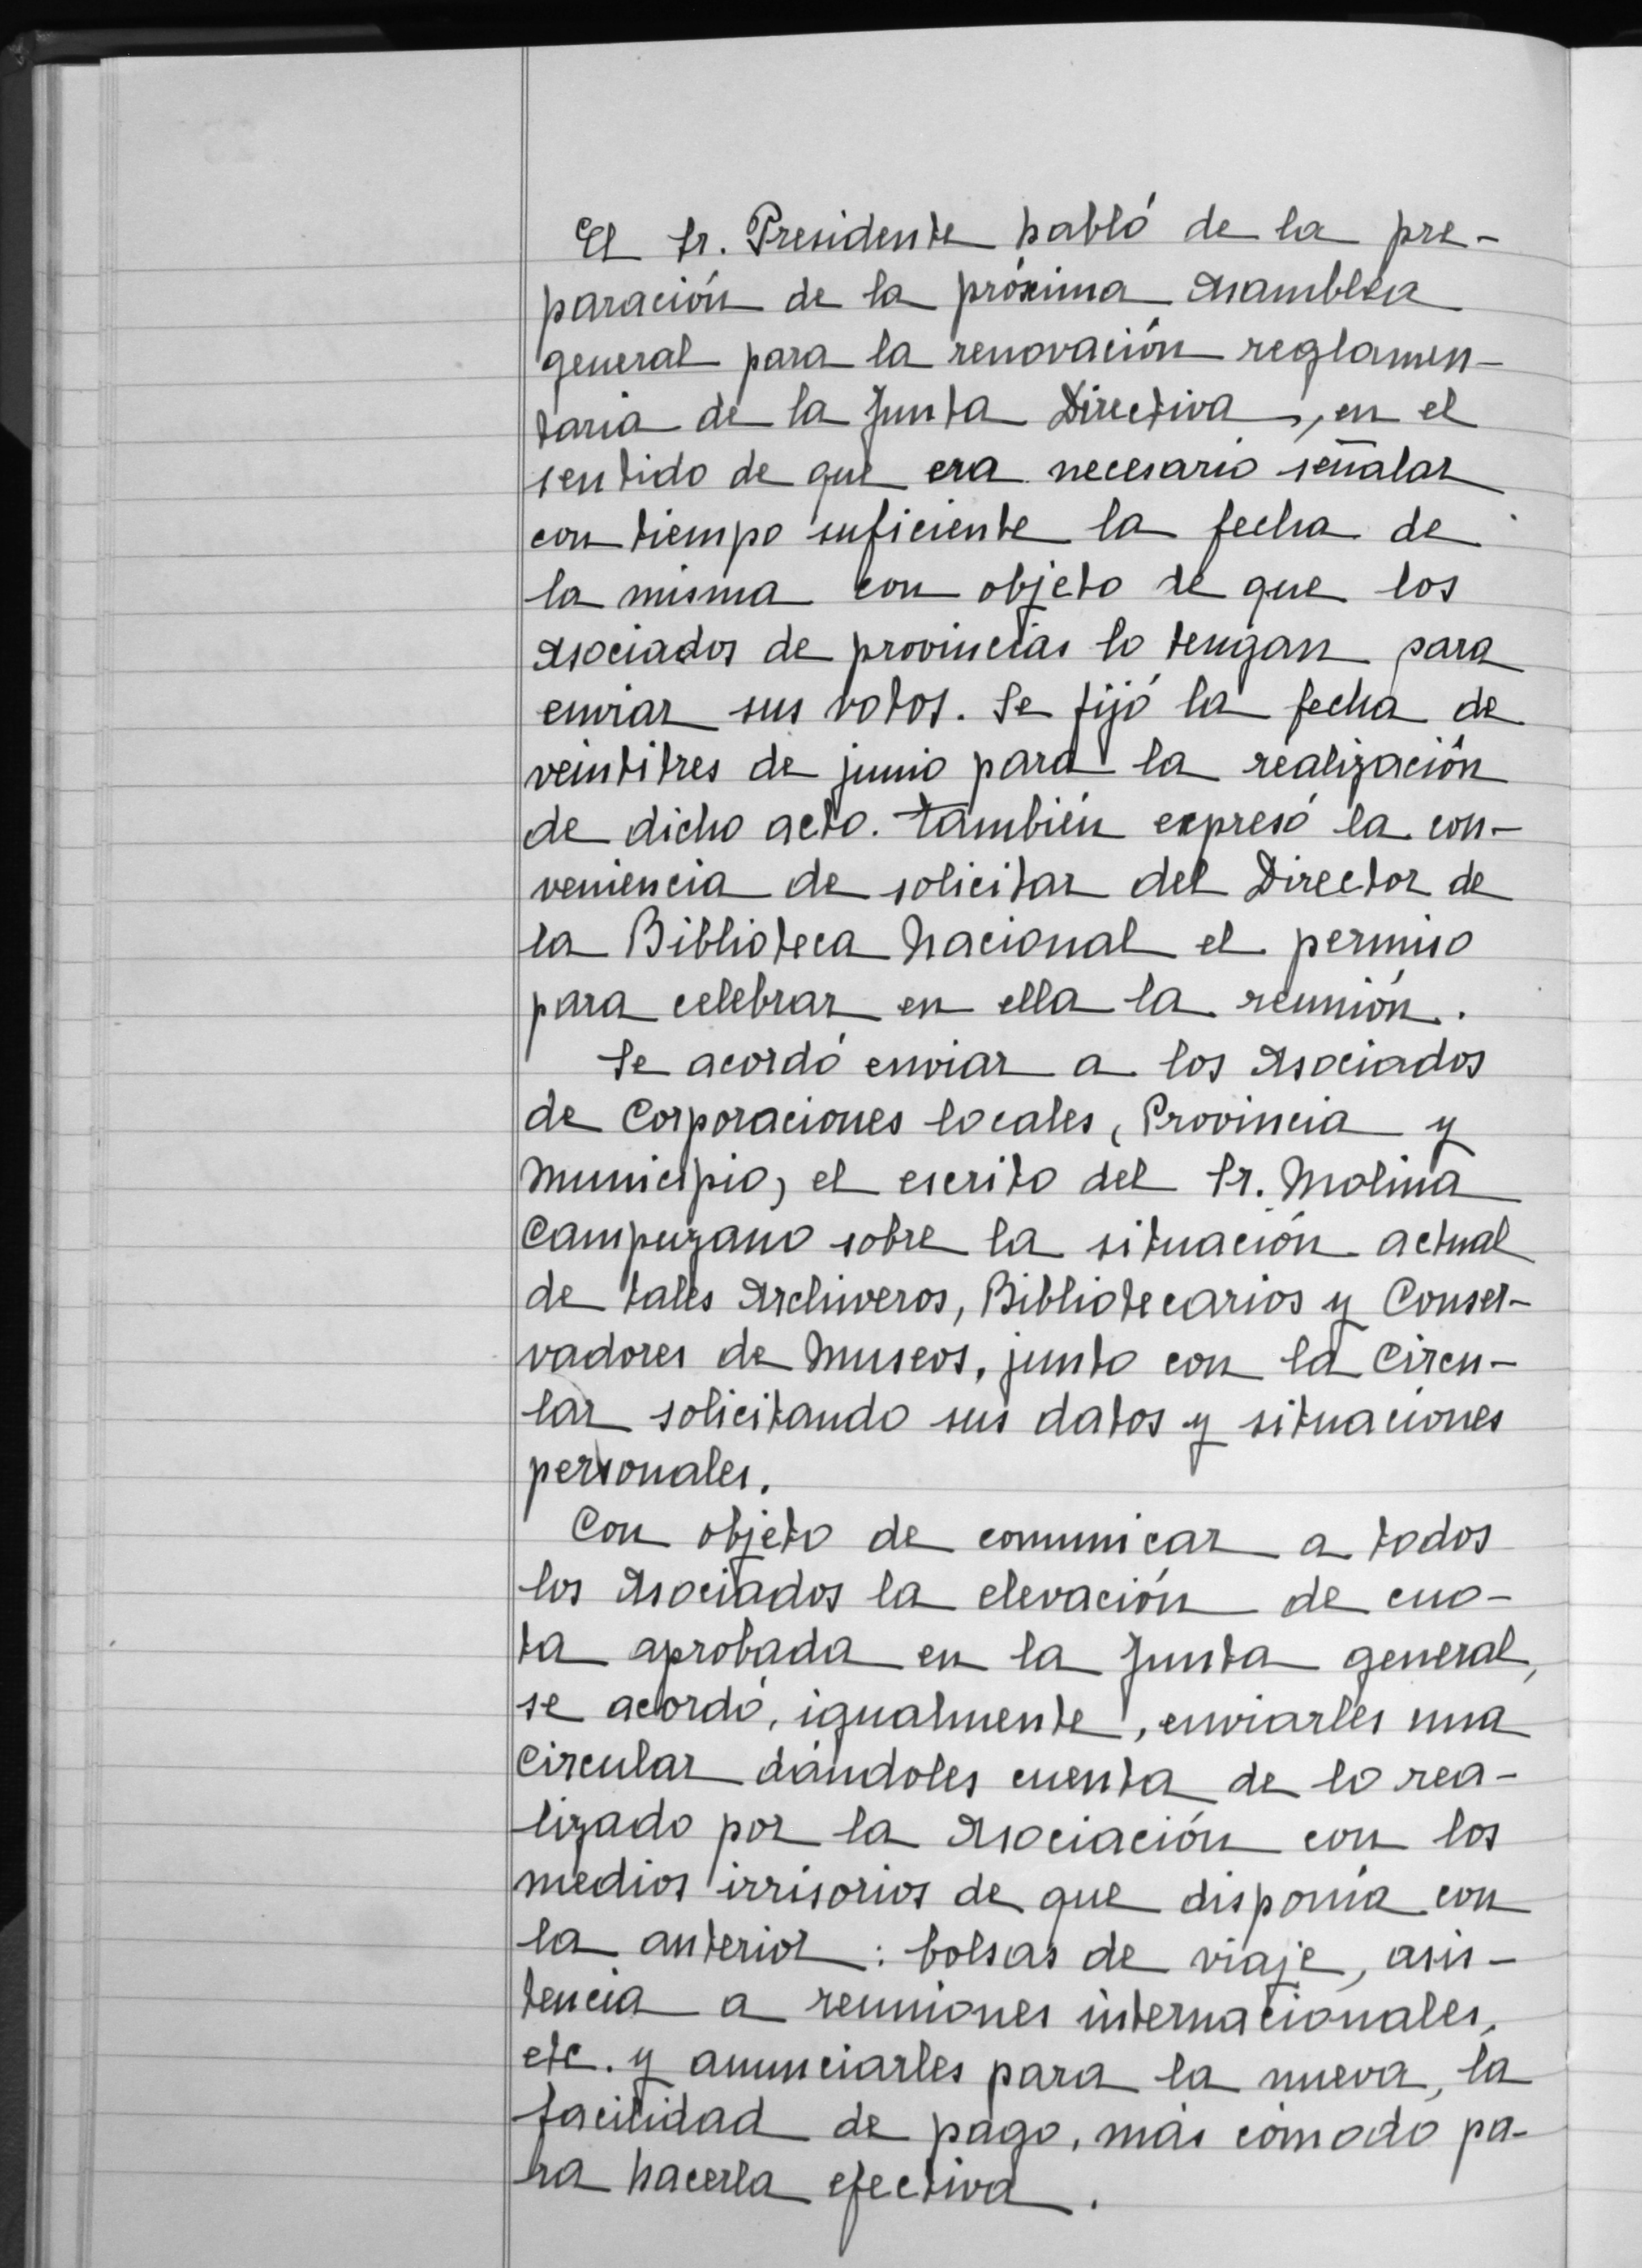 El Sr. Presidente habló de la pre-
paración de la próxima Asamblea
general para la renovación reglamen-
taria de la Junta Directiva, en el
sentido de que era necesario señalar
con tiempo suficiente la fecha de
la misma con objeto de que los
Asociados de provincias lo tengan para
enviar sus votos. Se fijó la fecha de
veintitres de junio para la realización
de dicho acto. También expresó la con-
veniencia de solicitar del Director de
la Biblioteca Nacional el permiso
para celebrar en ella la reunión.
Se acordó enviar a los Asociados
de Corporaciones locales, Provincia y
Municipio, el escrito del Sr. Molina
Campuzano sobre la situación actual
de tales Archiveros, Bibliotecarios y Conser-
vadores de Museos, junto con la Circu-
lar solicitando sus datos y situaciones
personales.
Con objeto de comunicar a todos
los Asociados la elevación de cuo-
ta aprobada en la Junta general,
se acordó, igualmente, enviarles una
Circular dándoles cuenta de lo rea-
lizado por la Asociación con los
medios irrisorios de que disponía con
la anterior: bolsas de viaje, asis-
tencia a reuniones internacionales,
etc. y anunciarles para la nueva, la
facilidad de pago, más cómodo pa-
ra hacerla efectiva.